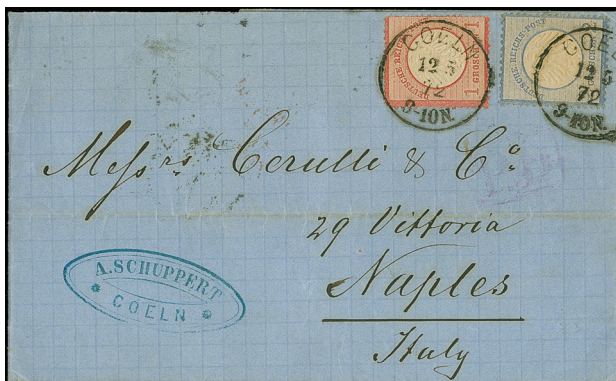 DEUTSCHE REICHS-POST
1 GROSCHEN 1
COELN
12 5
72
9-10N.
DEUTSCHE REICHS-POST
COEL
12 5
72
9-10N.
Messrs. Cerulli & Co
29 Vittoria
Naples
Italy
A.SCHUPPERT
COELN